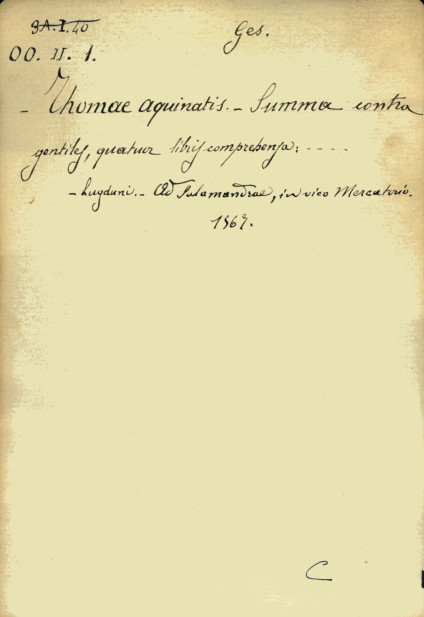 9A.I.40
Ges.
OO. II. 1.
- Thomae aquinatis. - Summa contra
gentiles, quatuor libris comprehensa: ----
- Lugduni. - Ad Salamandrae, in vico Mercatorio.
1567.
C